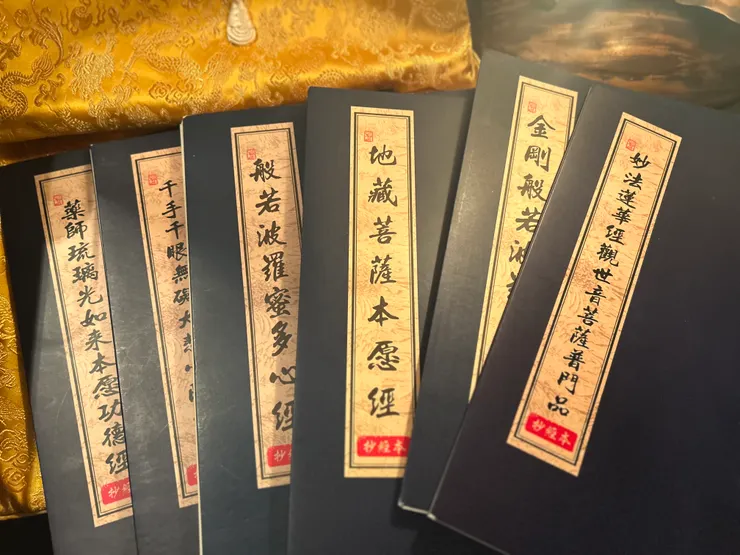 藥師琉璃光如来本愿功德經
抄經
千手千眼無礙大悲心
抄
般若波羅蜜多心經
抄經
地藏菩薩本愿經
抄經本
金剛般若波
妙法蓮華經觀世音菩薩普門品
抄經本